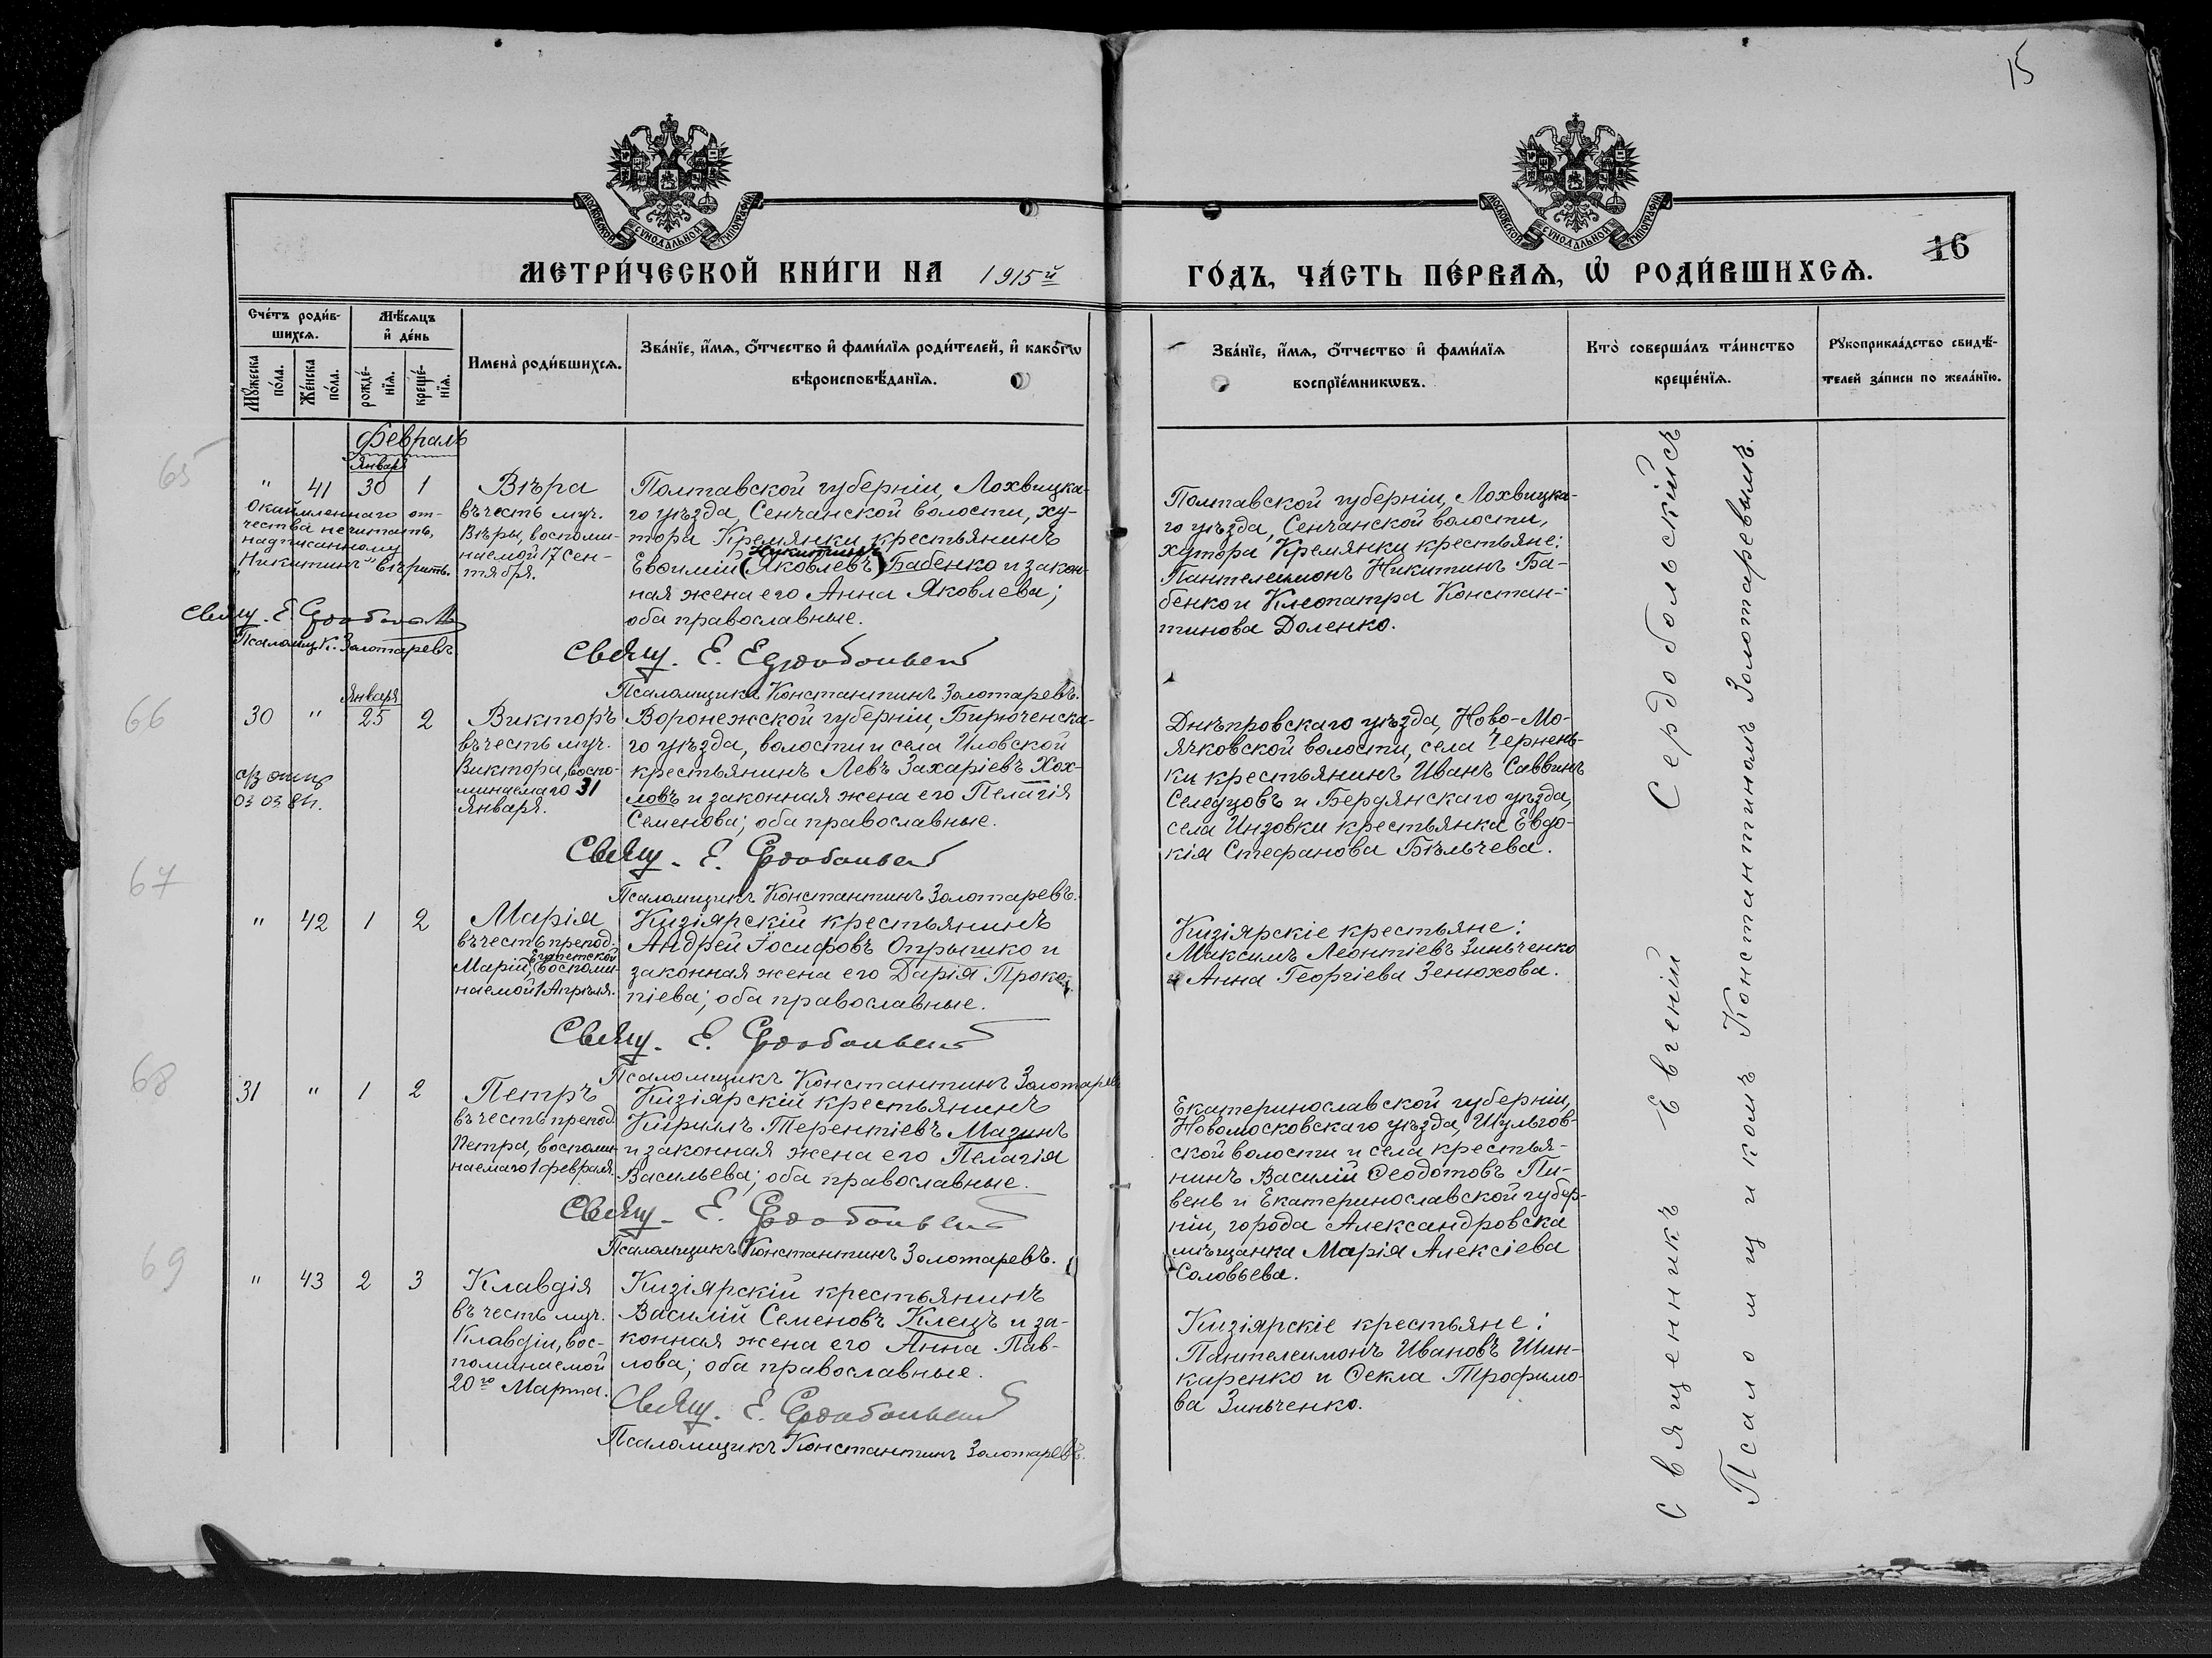 15
МОСКОВСКОЙ СѴНОДАЛЬНОЙ ТИПОГРАФІИ
МОСКОВСКОЙ СѴНОДАЛЬНОЙ ТИПОГРАФІИ
16
МЕТРИ́ЧЕСКОЙ КНИ́ГИ НА 1915й
ГО́ДЪ, ЧА́СТЬ ПЕ́РВАѦ, Ѽ РОДИ́ВШИХСѦ.
Сче́тъ роди́в-
шихсѧ.
Мꙋ́жеска
по́ла.
Же́нска
по́ла.
Мѣ́сѧцъ
и҆ де́нь
рожде́-
нїѧ.
креще́-
нїѧ.
Имена̀ роди́вшихсѧ.
Зва́нїе, и҆́мѧ, ѻ҆́тчество и҆ фами́лїѧ роди́телей, и҆ како́гѡ
вѣроисповѣ́данїѧ.
Зва́нїе, и҆́мѧ, ѻ҆́тчество и҆ фами́лїѧ
воспрїе́мникѡвъ.
Кто̀ соверша́лъ та́инство
креще́нїѧ.
Рꙋкоприкла́дство свидѣ́-
телей за́писи по жела́нїю.
Февраль
Января
65
" 41 30 1
Вѣра
въ честь муч.
Вѣры, воспоми-
наемой 17 сен-
тября.
Окаймленнаго от-
чества не читать,
надписанному
"Никитинъ" вѣрить.
Свящ. Е. Сердобольск
Псаломщ. К. Золотаревъ
Полтавской губерніи, Лохвицка-
го уѣзда, Сенчанской волости, ху-
тора Кремянки крестьянинъ
Никитинъ
Евѳимій (Яковлевъ) Бабенко и закон-
ная жена его Анна Яковлева;
оба православные.
Свящ. Е. Сердобольскій
Псаломщикъ Константинъ Золотаревъ.
Полтавской губерніи, Лохвицка-
го уѣзда, Сенчанской волости,
хутора Кремянки крестьяне:
Пантелеимонъ Никитинъ Ба-
бенко и Клеопатра Констан-
тинова Доленко.
66
Января
30 " 25 2
Викторъ
въ честь муч.
Виктора, воспо-
минаемаго 31
Января.
03 03 84.
Воронежской губерніи, Бирюченска-
го уѣзда, волости и села Иловской
крестьянинъ Левъ Захаріевъ Хох-
ловъ и законная жена его Пелагія
Семенова; оба православные.
Свящ. Е. Сердобольскій
Псаломщикъ Константинъ Золотаревъ.
Днѣпровскаго уѣзда, Ново-Мо-
ячковской волости, села Чернень-
ки крестьянинъ Иванъ Саввинъ
Селедцовъ и Бердянскаго уѣзда,
села Инзовки крестьянка Евдо-
кія Стефанова Бѣльчева.
67
" 42 1 2
Марія
въ честь препод.
Египетской
Маріи, воспоми-
наемой 1 Апрѣля.
Кизіярскій крестьянинъ
Андрей Іосифовъ Опрышко и
законная жена его Дарія Проко-
піева; оба православные.
Свящ. Е. Сердобольскій
Псаломщикъ Константинъ Золотарев
Кизіярскіе крестьяне:
Максимъ Леонтіевъ Зинъченко
и Анна Георгіева Зенюхова.
68
31 " 1 2
Петръ
въ честь препод.
Петра, воспоми-
наемаго 1 февраля.
Кизіярскій крестьянинъ
Кириллъ Терентіевъ Мазинъ
и законная жена его Пелагія
Васильева; оба православные.
Свящ. Е. Сердобольскій
Псаломщикъ Константинъ Золотаревъ.
Екатеринославской губерніи,
Новомосковскаго уѣзда, Шульгов-
ской волости и села крестья-
нинъ Василій Ѳеодотовъ Пи-
вень и Екатеринославской губер-
ніи, города Александровска
мѣщанка Марія Алексіева
Соловьева.
69
" 43 2 3
Клавдія
въ честь муч.
Клавдіи, вос-
поминаемой
20го Марта.
Кизіярскій крестьянинъ
Василій Семеновъ Клецъ и за-
конная жена его Анна Пав-
лова; оба православные.
Свящ. Е. Сердобольскій
Псаломщикъ Константинъ Золотаревъ.
Кизіярскіе крестьяне:
Пантелеимонъ Ивановъ Шин-
каренко и Ѳекла Трофимо-
ва Зинъченко.
Священникъ Евгеній Сердобольскійсъ
Псаломщикомъ Константиномъ Золотаревымъ.